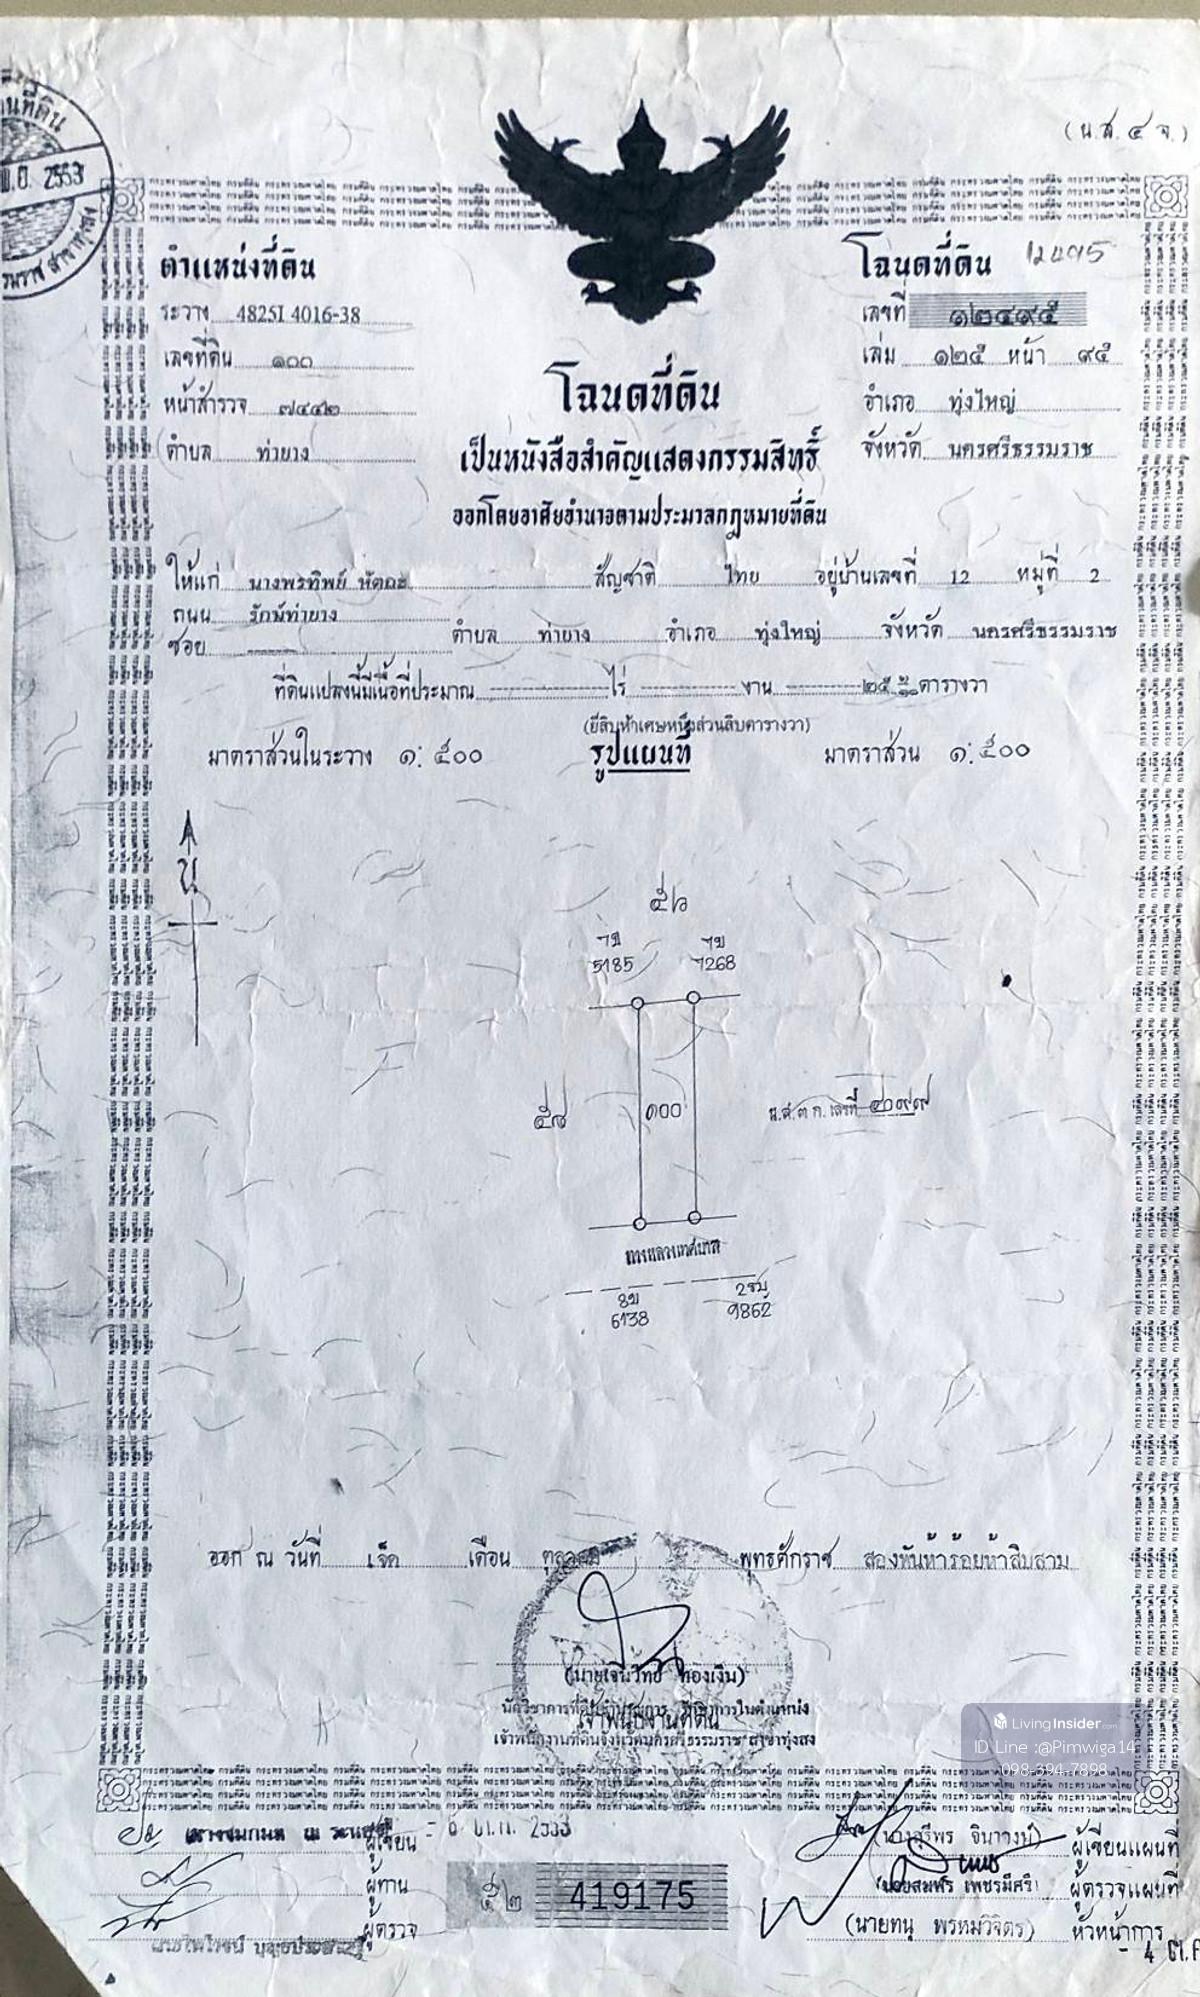 (น.ส. ๔ จ.)
พ.ย. 2553
ตำแหน่งที่ดิน
ระวาง 4825I 4016-38
เลขที่ดิน ๑๐๐
หน้าสำรวจ ๗๔๔๒
ตำบล ท่ายาง
โฉนดที่ดิน 12495
เลขที่ ๑๒๔๙๕
เล่ม ๑๒๕ หน้า ๙๕
อำเภอ ทุ่งใหญ่
จังหวัด นครศรีธรรมราช
โฉนดที่ดิน
เป็นหนังสือสำคัญแสดงกรรมสิทธิ์
ออกโดยอาศัยอำนาจตามประมวลกฎหมายที่ดิน
ให้แก่ นางพรทิพย์ หัตถะ สัญชาติ ไทย อยู่บ้านเลขที่ 12 หมู่ที่ 2
ถนน รักษ์ท่ายาง
ซอย ตำบล ท่ายาง อำเภอ ทุ่งใหญ่ จังหวัด นครศรีธรรมราช
ที่ดินแปลงนี้มีเนื้อที่ประมาณ ไร่ งาน ๒๕ ๑/๑๐ ตารางวา
(ยี่สิบห้าเศษหนึ่งส่วนสิบตารางวา)
มาตราส่วนในระวาง ๑: ๕๐๐ รูปแผนที่ มาตราส่วน ๑: ๕๐๐
น
๕๖
7ข 7ข
5185 7268
๕๗ ๑๐๐ น.ส.๓ ก. เลขที่
ทางหลวงเทศบาล
8ข
6138 9862
ออก ณ วันที่ เจ็ด เดือน ตุลาคม พุทธศักราช สองพันห้าร้อยห้าสิบสาม
(นายเจนวิทย์ ทองเงิน)
เจ้าพนักงานที่ดิน
เจ้าพนักงานที่ดินจังหวัดนครศรีธรรมราช สาขาทุ่งสง
LivingInsider.com
ID Line :@Pimwiga14
098-394-7898
ผู้เขียน
ผู้ทาน
ผู้ตรวจ
๕๒ 419175
(นางสุรีพร จินาวงษ์) ผู้เขียนแผนที่
ผู้ตรวจแผนที่
(นายทนุ พรหมวิจิตร) หัวหน้าการ